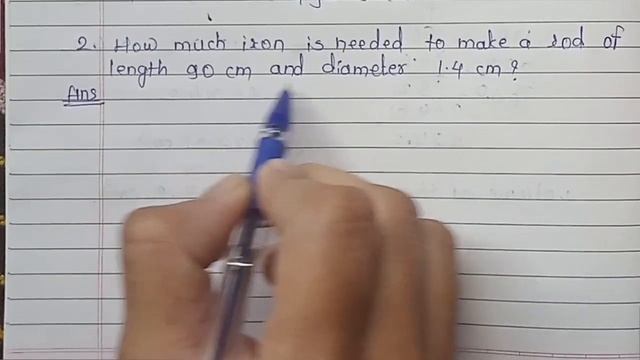 2. How much iron is needed to make a rod of
length 90 cm and diameter 1.4 cm?
Ans